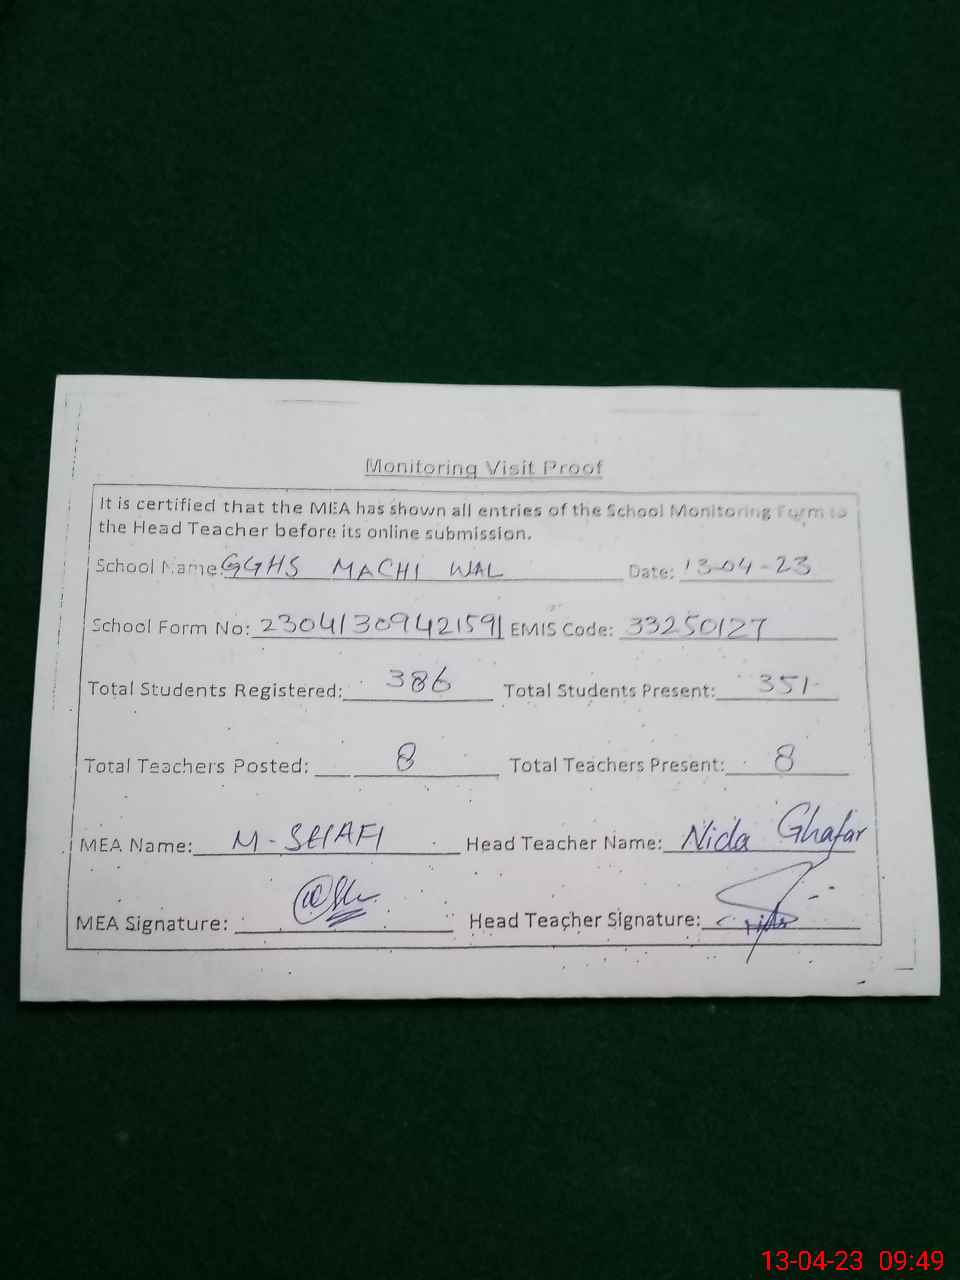 Monitoring Visit Proof
It is certified that the MEA has shown all entries of the School Monitoring Form to
the Head Teacher before its online submission.
School Name: GGHS MACHI WAL Date: 13-04-23
School Form No: 23041309421591 EMIS Code: 33250127
Total Students Registered: 386 Total Students Present: 351
Total Teachers Posted: 8 Total Teachers Present: 8
MEA Name: M-SHAFI Head Teacher Name: Nida Ghafar
MEA Signature: Head Teacher Signature:
13-04-23 09:49